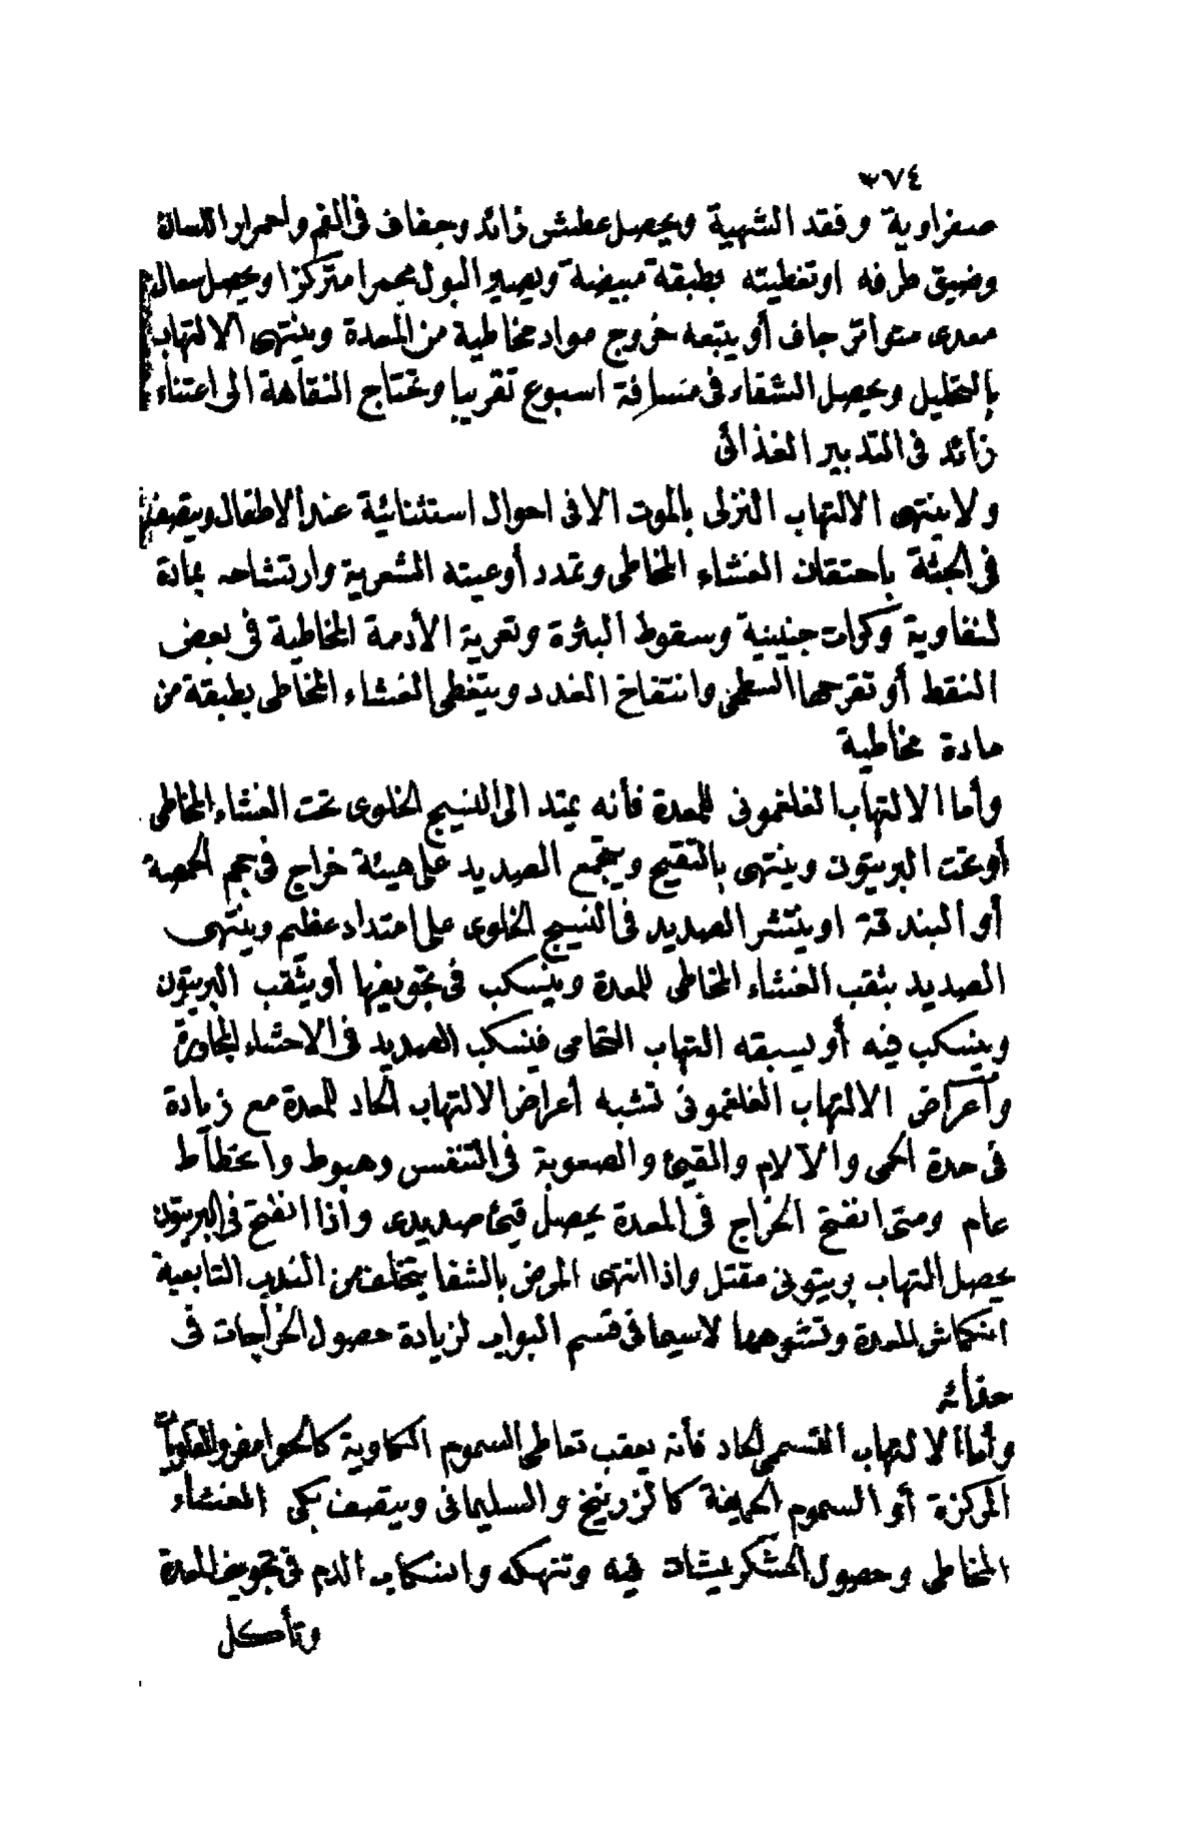 ٣٧٤
صفراوية وفقد الشهية ويحصل عطش زائد وجفاف فى الفم واحمرار اللسان
وضيق طرفه اوتغطيته بطبقة مبيضة ويصير البول محمرا متركزا ويحصل سعال
معدى متواتر جاف أو يتبعه خروج مواد مخاطية من المعدة وينتهى الالتهاب
بالتحليل ويحصل الشفاء فى مسافة اسبوع تقريبا وتحتاج النقاهة الى اعتناء
زائد فى التدبير الغذائى
ولا ينتهى الالتهاب النزلى بالموت الا فى احوال استثنائية عند الاطفال ويتصف
فى الجثة باحتقان الغشاء المخاطى وتمدد أوعيته الشعرية وارتشاحه بمادة
لنفاوية وكرات جنينية وسقوط البثرة وتعرية الأدمة المخاطية فى بعض
النقط أو تقرحها السطحى وانتفاخ الغدد ويتغطى الغشاء المخاطى بطبقة من
مادة مخاطية
وأما الالتهاب الفلغمونى للمعدة فأنه يمتد الى النسيج الخلوى تحت الغشاء المخاطى
أوتحت البريتون وينتهى بالتقيح ويتجمع الصديد على هيئة خراج فى حجم الحمصة
أو البندقة او ينتشر الصديد فى النسيج الخلوى على امتداد عظيم وينتهى
الصديد بثقب الغشاء المخاطى للمعدة وينسكب فى تجويفها أو يثقب البريتون
وينسكب فيه أو يسبقه التهاب التحامى فينسكب الصديد فى الاحشاء المجاورة
وأعراض الالتهاب الفلغمونى تشبه أعراض الالتهاب الحاد للمعدة مع زيادة
فى حدة الحمى والآلام والقيئ والصعوبة فى التنفس وهبوط وانحطاط
عام ومتى انفتح الخراج فى المعدة يحصل قيئ صديدى وأذا انفتح فى البريتون
يحصل التهاب بريتونى مقتل واذا انتهى المرض بالشفا يتخلف من الندب التابعية
انكماش للمعدة وتشوهها لاسيما فى قسم البواب لزيادة حصول الخراجات فى
حذائه
وأما الالتهاب التسممى الحاد فأنه يعقب تعاطى السموم الكاوية كالحوامض والقلويات
المركزة أو السموم الحريفة كالزرنيخ والسليمانى ويتصف بكى الغشاء
المخاطى وحصول الخشكريشات فيه وتنهكه وانسكاب الدم فى تجويف المعدة
وتأكل